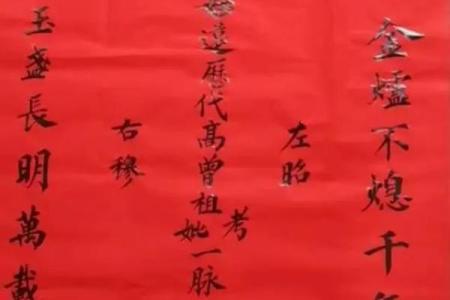 金爐不熄千年
左昭
遠歷代高曾祖考妣一脈
右穆
玉盞長明萬載